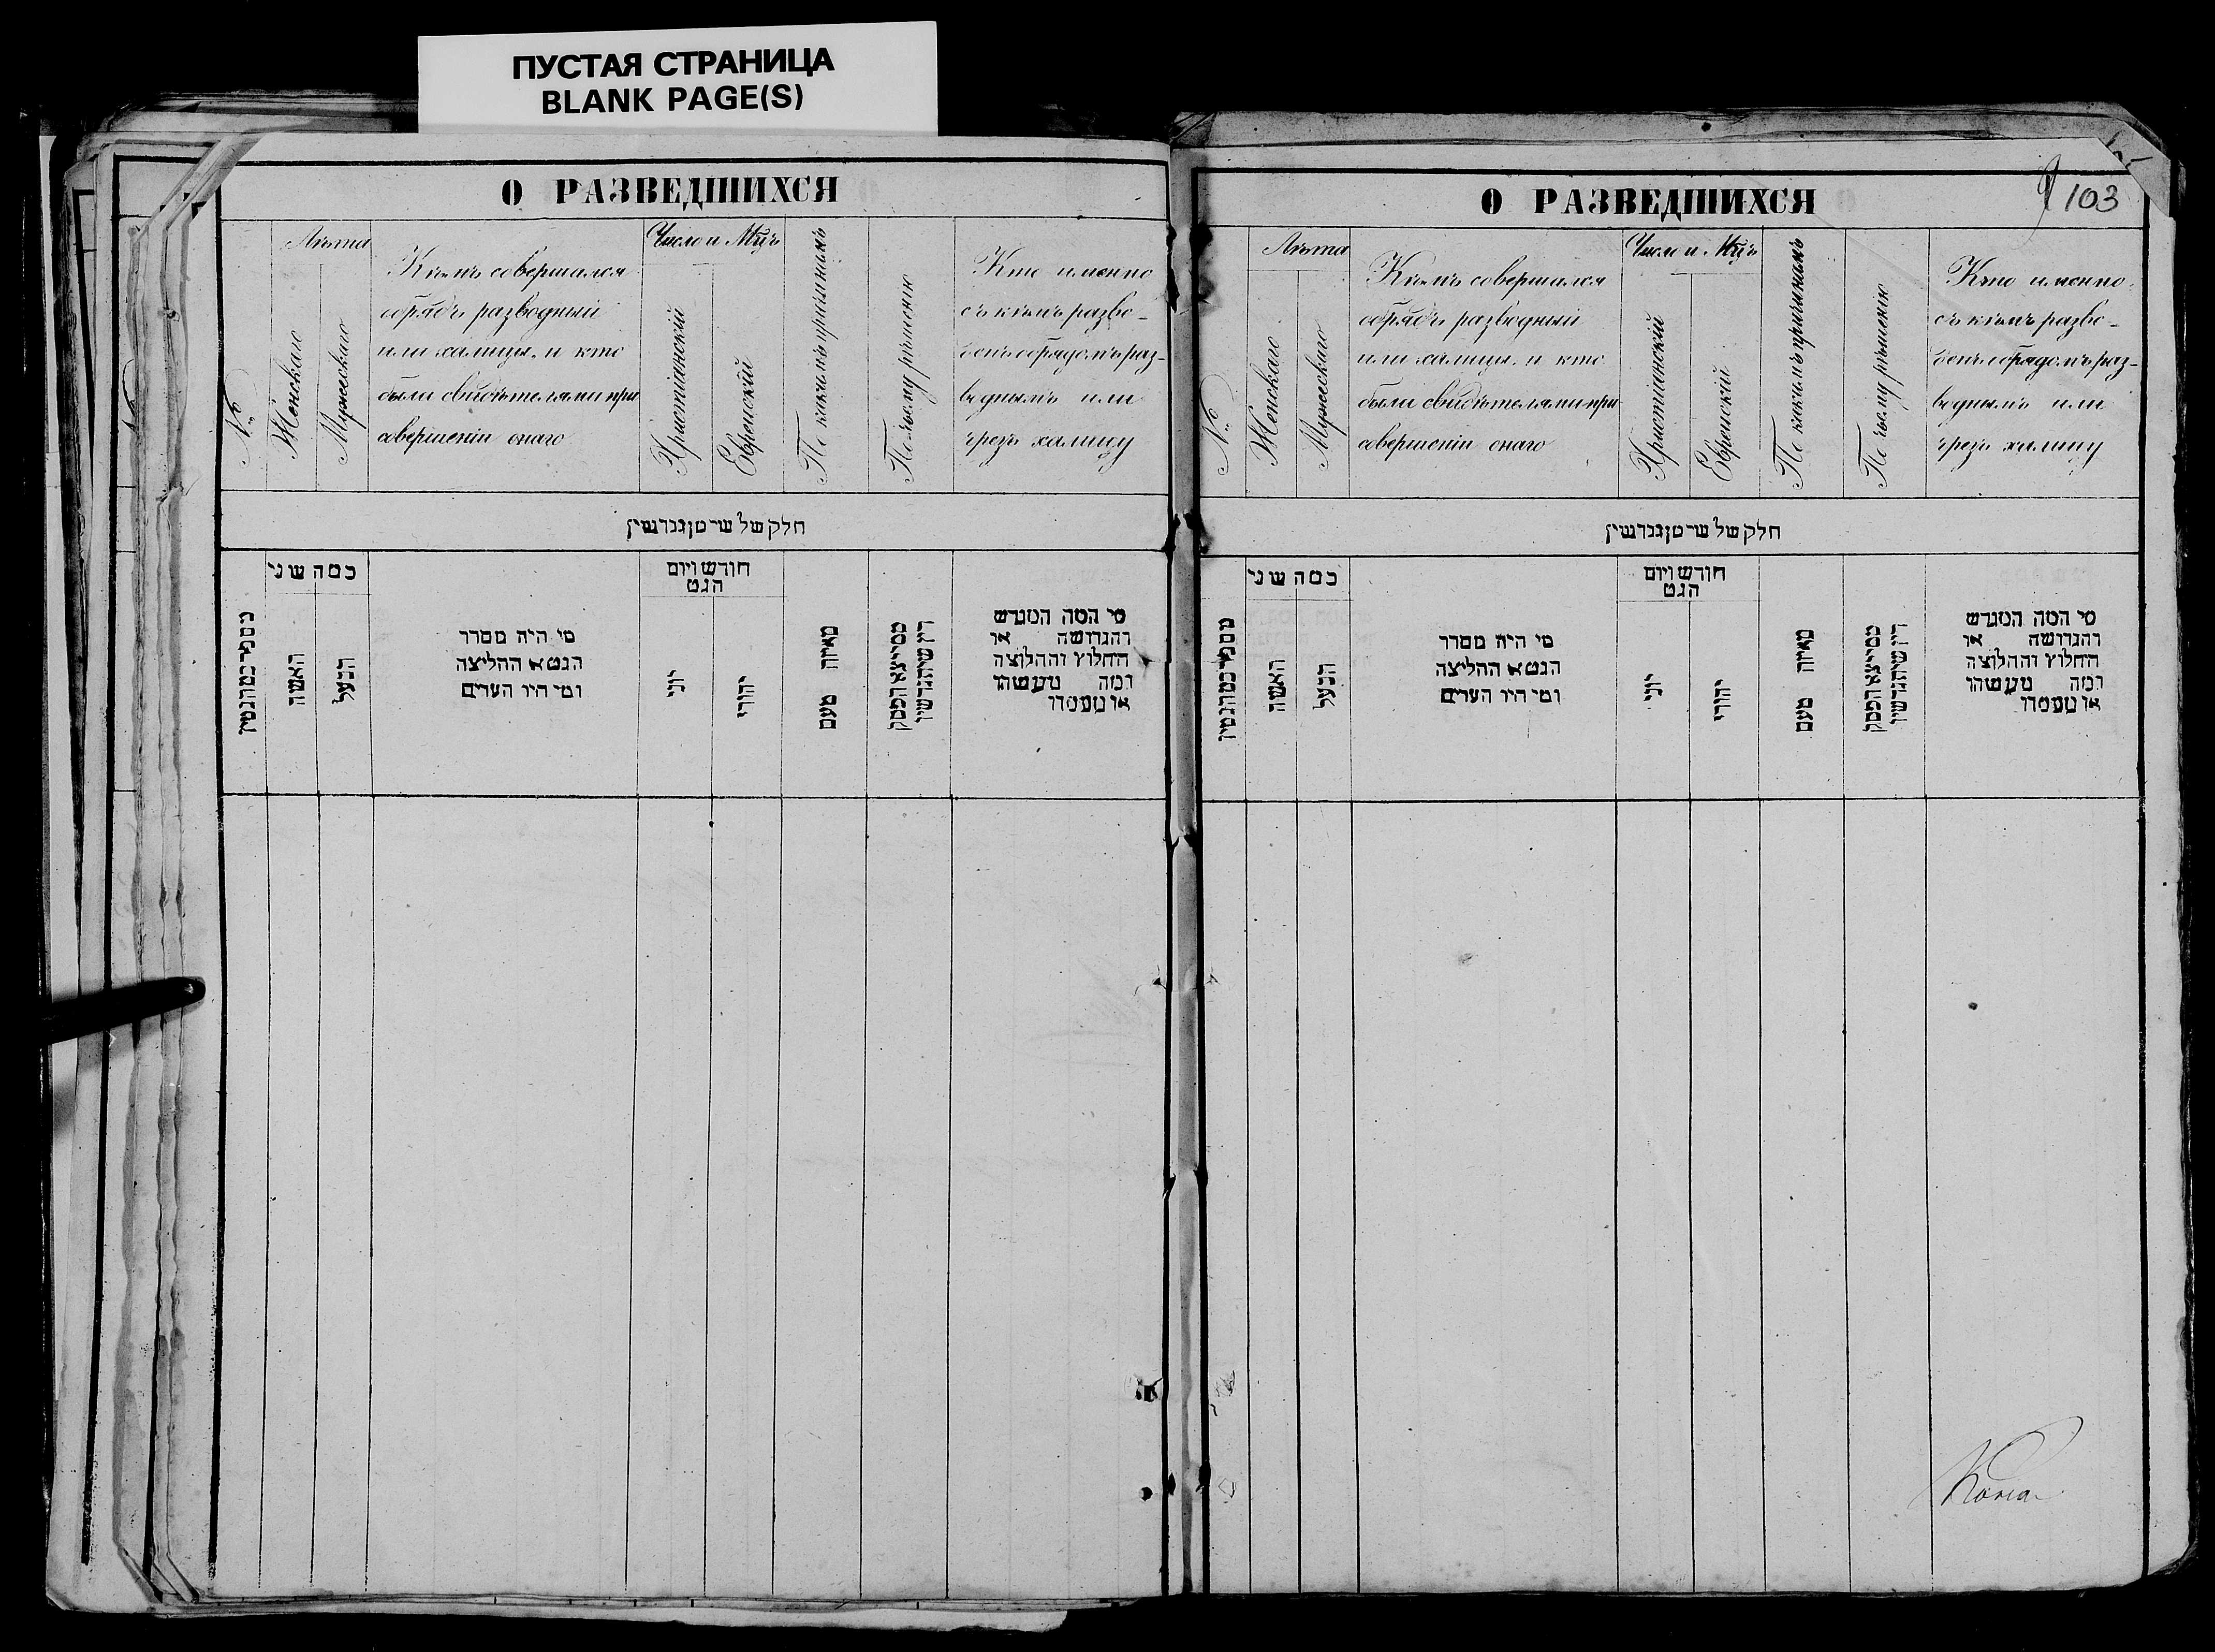 ПУСТАЯ СТРАНИЦА
BLANK PAGE(S)
О РАЗВЕДШИХСЯ
№
Лѣта
Женскаго
Мужескаго
Кѣмъ совершался
обрядъ разводный
или халицы, и кто
были свидѣтелями при
совершеніи онаго
Число и Мцъ
Христіанскій
Еврейскій
По какимъ причинамъ
По чьему рѣшенію
Кто именно
съ кѣмъ разве-
денъ обрядомъ раз-
воднымъ или
чрезъ халицу
חלק של שרטן גנרשין
כמה שני
האשה
הבעל
מי היה מסדר
הגט א החליצה
ומי היו העדים
חודש ויום
הגט
יוני
יהודי
מאיזה טעם
מי המה המגרש
והגרושה או
החלוץ והחלוצה
ומה מעשהו
או מעמדו
О РАЗВЕДШИХСЯ
103
№
Лѣта
Женскаго
Мужескаго
Кѣмъ совершался
обрядъ разводный
или халицы, и кто
были свидѣтелями при
совершеніи онаго
Число и Мцъ
Христіанскій
Еврейскій
По какимъ причинамъ
По чьему рѣшенію
Кто именно
съ кѣмъ разве-
денъ обрядомъ раз-
воднымъ или
чрезъ халицу
חלק של שרטן גנרשין
כמה שני
האשה
הבעל
מי היה מסדר
הגט א החליצה
ומי היו העדים
חודש ויום
הגט
יוני
יהודי
מאיזה טעם
מי המה המגרש
והגרושה או
החלוץ והחלוצה
ומה מעשהו
או מעמדו